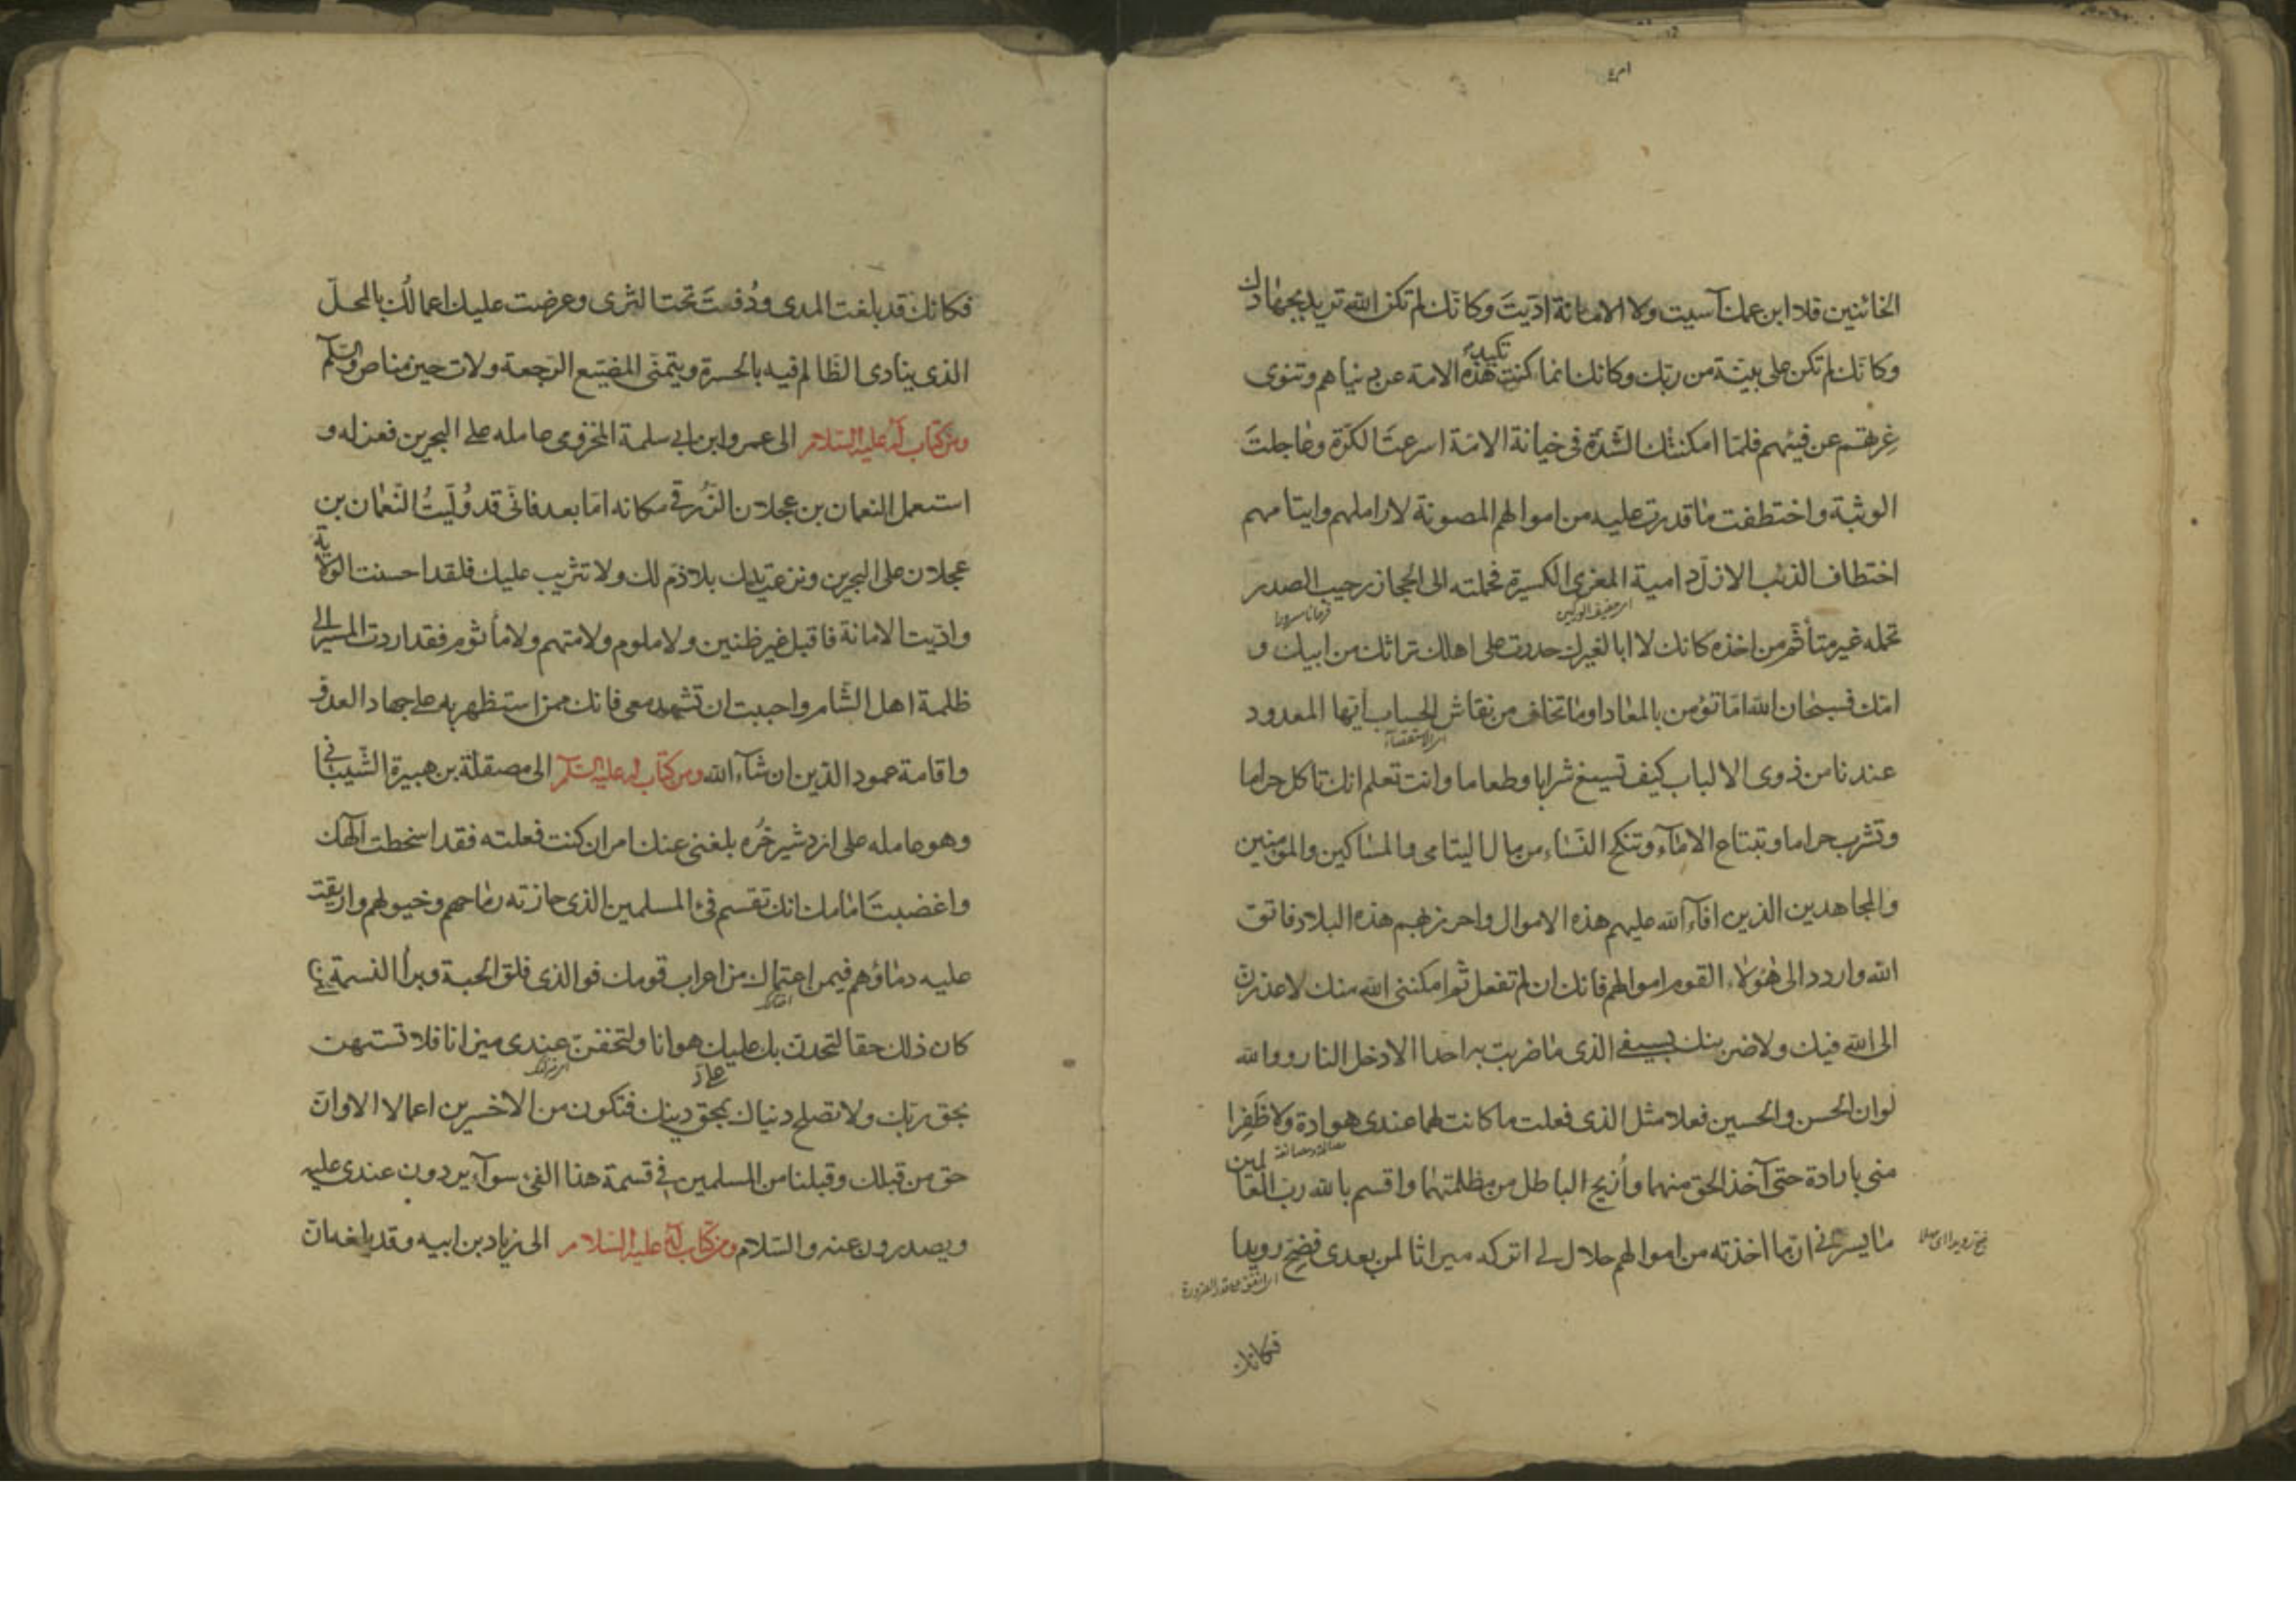 الخائنين فلا ابن عمك آسيت ولا الامانة اديت وكانك لم تكن الله تريد بجهادك
وكانك لم تكن على بينة من ربك وكانك انما كنت تكيد هذه الامة عن دنياهم وتنوى
غرتهم عن فيئهم فلما امكنتك الشدة فى خيانة الامة اسرعت الكرة وعاجلت
الوثبة واختطفت ما قدرت عليه من اموالهم المصونة لاراملهم وايتامهم
اختطاف الذئب الازل دامية المعزى الكسيرة فحملته الى الحجاز رحيب الصدر
تحمله غير متأثم من اخذه كانك لا ابا لغيرك حدرت على اهلك تراثك من ابيك و
امك فسبحان الله اما تؤمن بالمعاد اوما تخاف من نقاش الحساب ايها المعدود
اى الاستقصاء
عندنا من ذوى الالباب كيف تسيغ شرابا وطعاما وانت تعلم انك تاكل حراما
وتشرب حراما وتبتاع الاماء وتنكح النساء من مال اليتامى والمساكين والمؤمنين
والمجاهدين الذين افاء الله عليهم هذه الاموال واحرز بهم هذه البلاد فاتق
الله واردد الى هؤلاء القوم اموالهم فانك ان لم تفعل ثم امكننى الله منك لاعذرن
الى الله فيك ولاضربنك بسيفى الذى ما ضربت به احدا الا دخل النار ووالله
لو ان الحسن والحسين فعلا مثل الذى فعلت ما كانت لهما عندى هوادة ولا ظفرا
منى بارادة حتى آخذ الحق منهما وازيح الباطل من مظلمتهما واقسم بالله رب العالمين
ما يسرنى ان ما اخذته من اموالهم حلال لى اتركه ميراثا لمن بعدى فضح رويدا
فكانك
فكانك قد بلغت المدى ودفنت تحت الثرى وعرضت عليك اعمالك بالمحل
الذى ينادى الظالم فيه بالحسرة ويتمنى المضيع الرجعة ولات حين مناص والسلم
ومن كتاب له عليه السلام الى عمرو ابن ابى سلمة المخزومى عامله على البحرين فعزله و
استعمل النعمان بن عجلان الزرقى مكانه اما بعد فانى قد وليت النعمان بن
عجلان على البحرين ونزعت يدك بلا ذم لك ولا تثريب عليك فلقد احسنت الولاية
واديت الامانة فاقبل غير ظنين ولا ملوم ولا متهم ولا مأثوم فقد اردت المسير الى
ظلمة اهل الشام واحببت ان تشهد معى فانك ممن استظهر به على جهاد العدو
واقامة عمود الدين ان شاء الله ومن كتاب له عليه السلم الى مصقلة بن هبيرة الشيبانى
وهو عامله على ازدشير خره بلغنى عنك امر ان كنت فعلته فقد اسخطت آلهك
واغضبت امامك انك تقسم فئ المسلمين الذى حازته رماحهم وخيولهم واريقت
عليه دماؤهم فيمن اعتمالك من اعراب قومك فوالذى فلق الحبة وبرأ النسمة لئن
كان ذلك حقا لتجدن بك عليك هوانا ولتخفن عندى ميزانا فلا تستهن
بحق ربك ولا تصلح دنياك بمحق دينك فتكون من الاخسرين اعمالا الا وان
حق من قبلك وقبلنا من المسلمين فى قسمة هذا الفئ سواء يردون عندى عليه
ويصدرون عنه والسلام ومن كتاب له عليه السلام الى زياد بن ابيه وقد بلغه ان